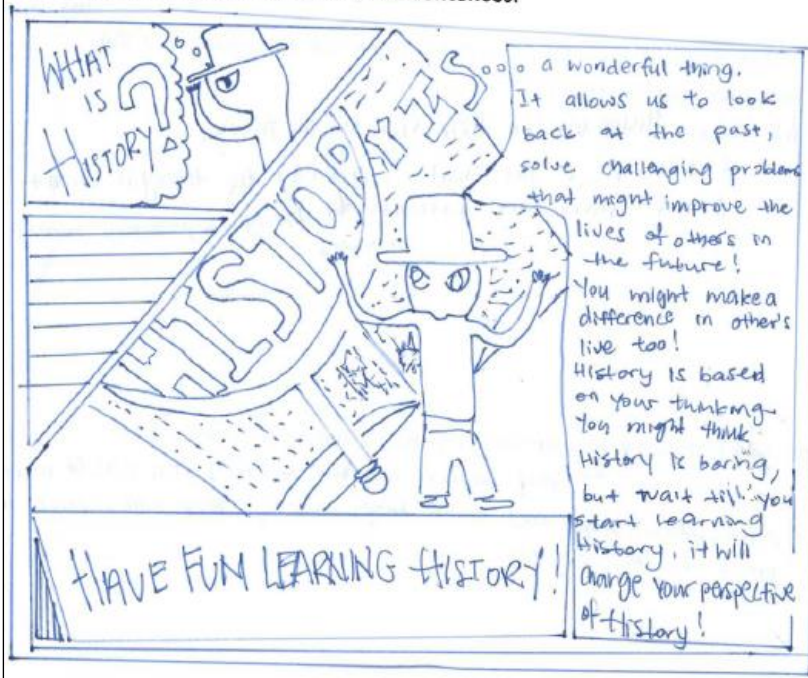 WHAT
IS
HISTORY?
HISTORY IS...
a wonderful thing.
It allows us to look
back at the past,
solve challenging problems
that might improve the
lives of others in
the future!
You might make a
difference in other's
live too!
History is based
on your thinking
You might think
History is boring,
but wait till you
start learning
History, it will
change your perspective
of History!
HAVE FUN LEARNING HISTORY!